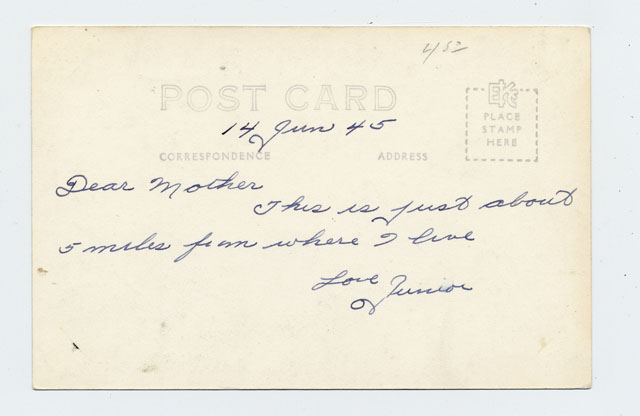 4 50
POST CARD
EKC
PLACE
STAMP
HERE
14 Jun 45
CORRESPONDENCE ADDRESS
Dear Mother
This is just about
5 miles from where I live
Love
Junior